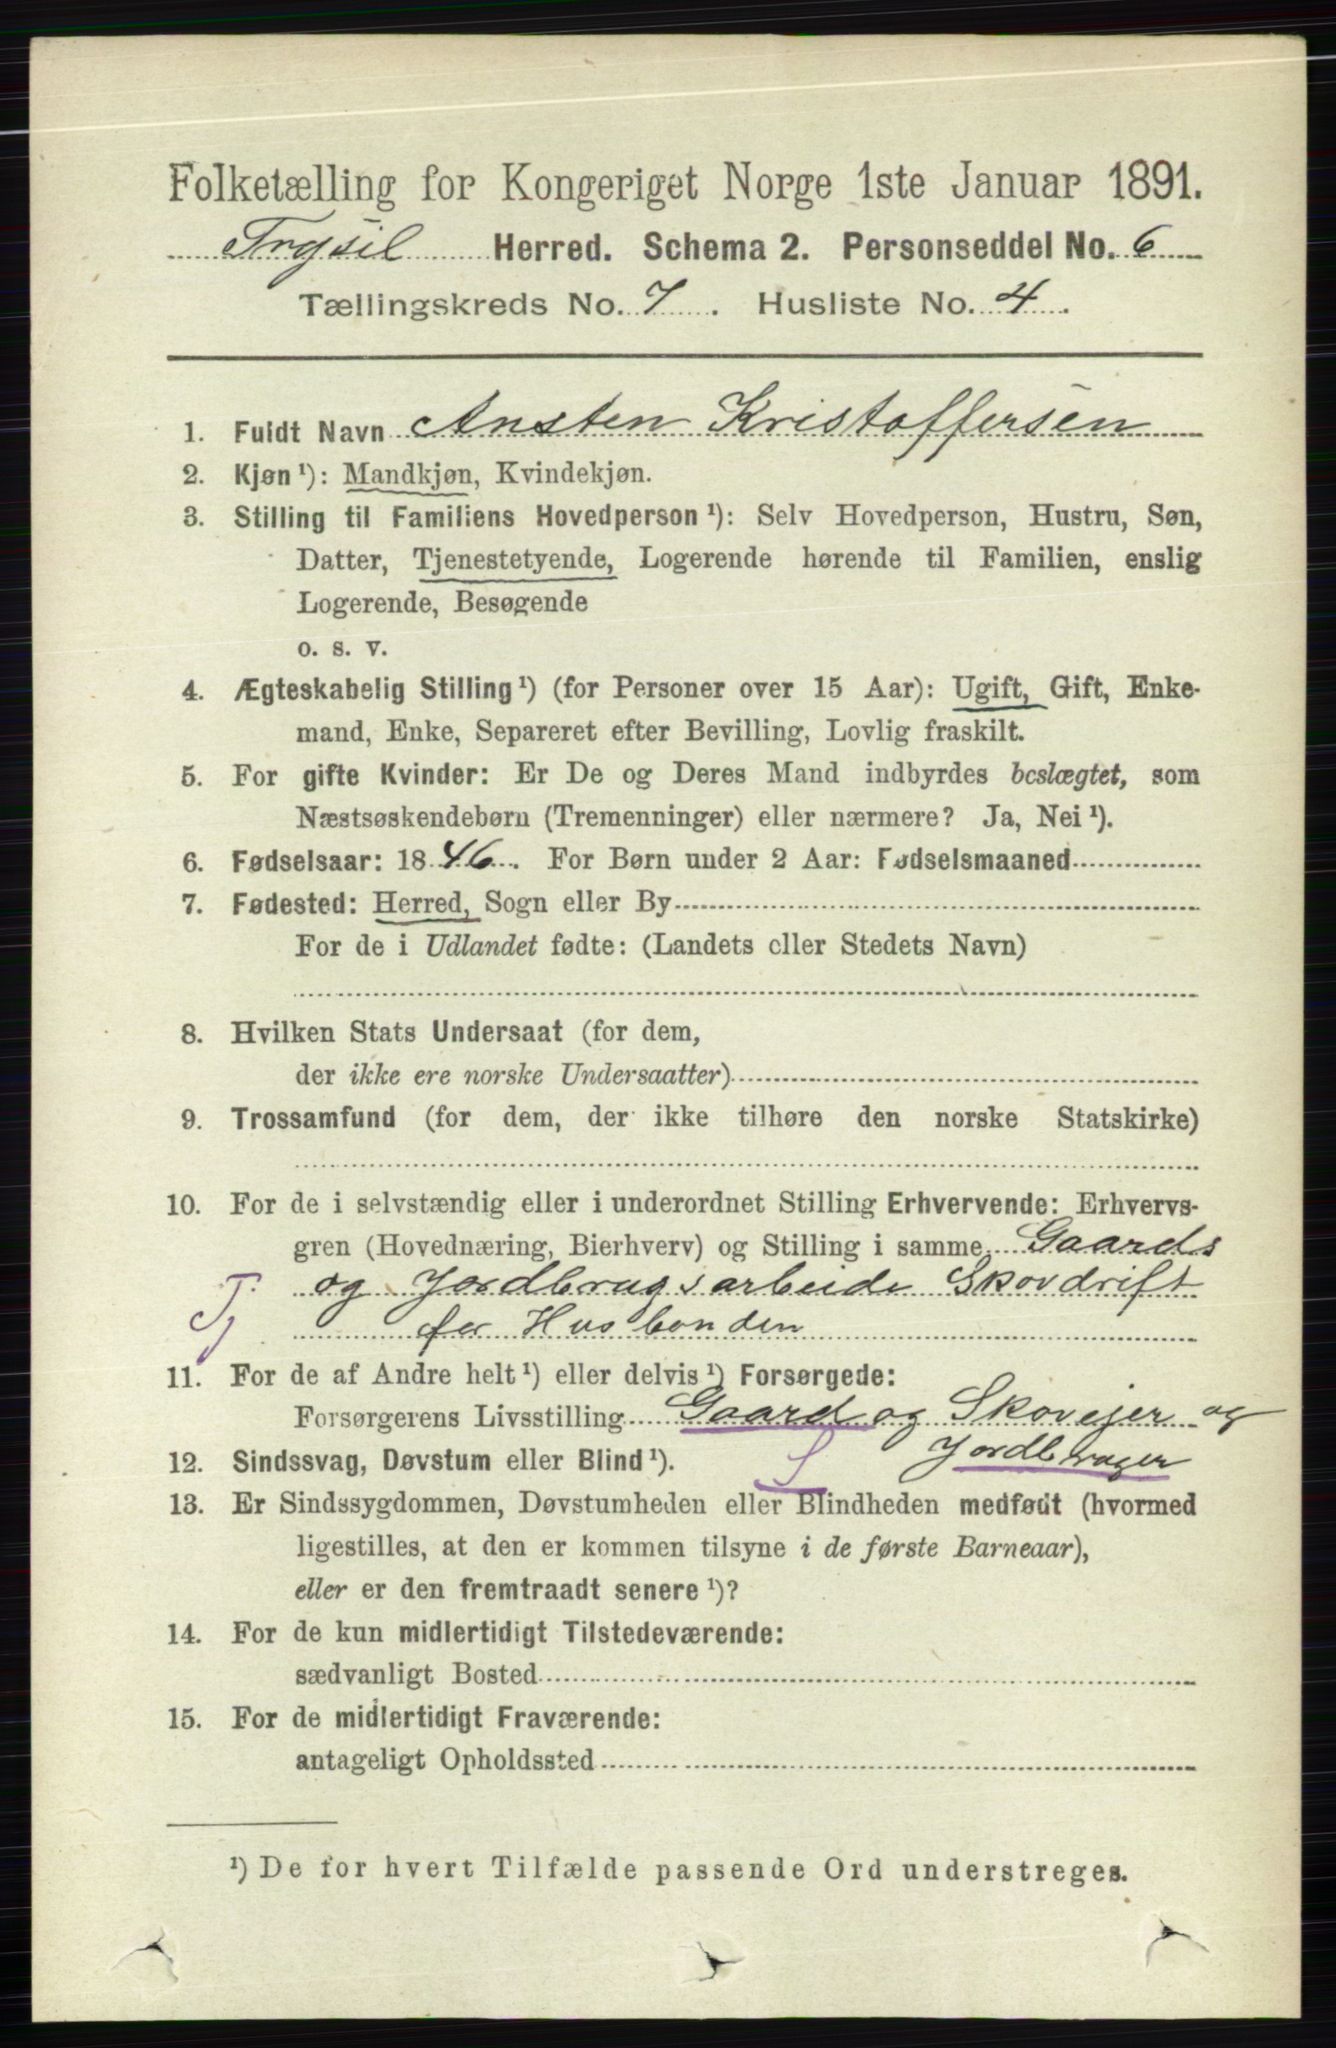 Folketælling for Kongeriget Norge 1ste Januar 1891.
Trysil Herred. Schema 2. Personseddel No. 6
Tællingskreds No. 7. Husliste No. 4.
1. Fuldt Navn Ansten Kristoffersen
2. Kjøn¹): Mandkjøn, Kvindekjøn.
3. Stilling til Familiens Hovedperson¹): Selv Hovedperson, Hustru, Søn,
Datter, Tjenestetyende, Logerende hørende til Familien, enslig
Logerende, Besøgende
o. s. v.
4. Ægteskabelig Stilling¹) (for Personer over 15 Aar): Ugift, Gift, Enke-
mand, Enke, Separeret efter Bevilling, Lovlig fraskilt.
5. For gifte Kvinder: Er De og Deres Mand indbyrdes beslægtet, som
Næstsøskendebørn (Tremenninger) eller nærmere? Ja, Nei¹).
6. Fødselsaar: 1846. For Børn under 2 Aar: Fødselsmaaned
7. Fødested: Herred, Sogn eller By
For de i Udlandet fødte: (Landets eller Stedets Navn)
8. Hvilken Stats Undersaat (for dem,
der ikke ere norske Undersaatter)
9. Trossamfund (for dem, der ikke tilhøre den norske Statskirke)
10. For de i selvstændig eller i underordnet Stilling Erhvervende: Erhvervs-
gren (Hovednæring, Bierhverv) og Stilling i samme Gaards
og Jordbrugsarbeide Skovdrift
Tj for Husbonden
11. For de af Andre helt¹) eller delvis¹) Forsørgede:
Forsørgerens Livsstilling Gaard og Skovejer og
Jordbruger
12. Sindssvag, Døvstum eller Blind¹). S
13. Er Sindssygdommen, Døvstumheden eller Blindheden medfødt (hvormed
ligestilles, at den er kommen tilsyne i de første Barneaar),
eller er den fremtraadt senere¹)?
14. For de kun midlertidigt Tilstedeværende:
sædvanligt Bosted
15. For de midlertidigt Fraværende:
antageligt Opholdssted
¹) De for hvert Tilfælde passende Ord understreges.